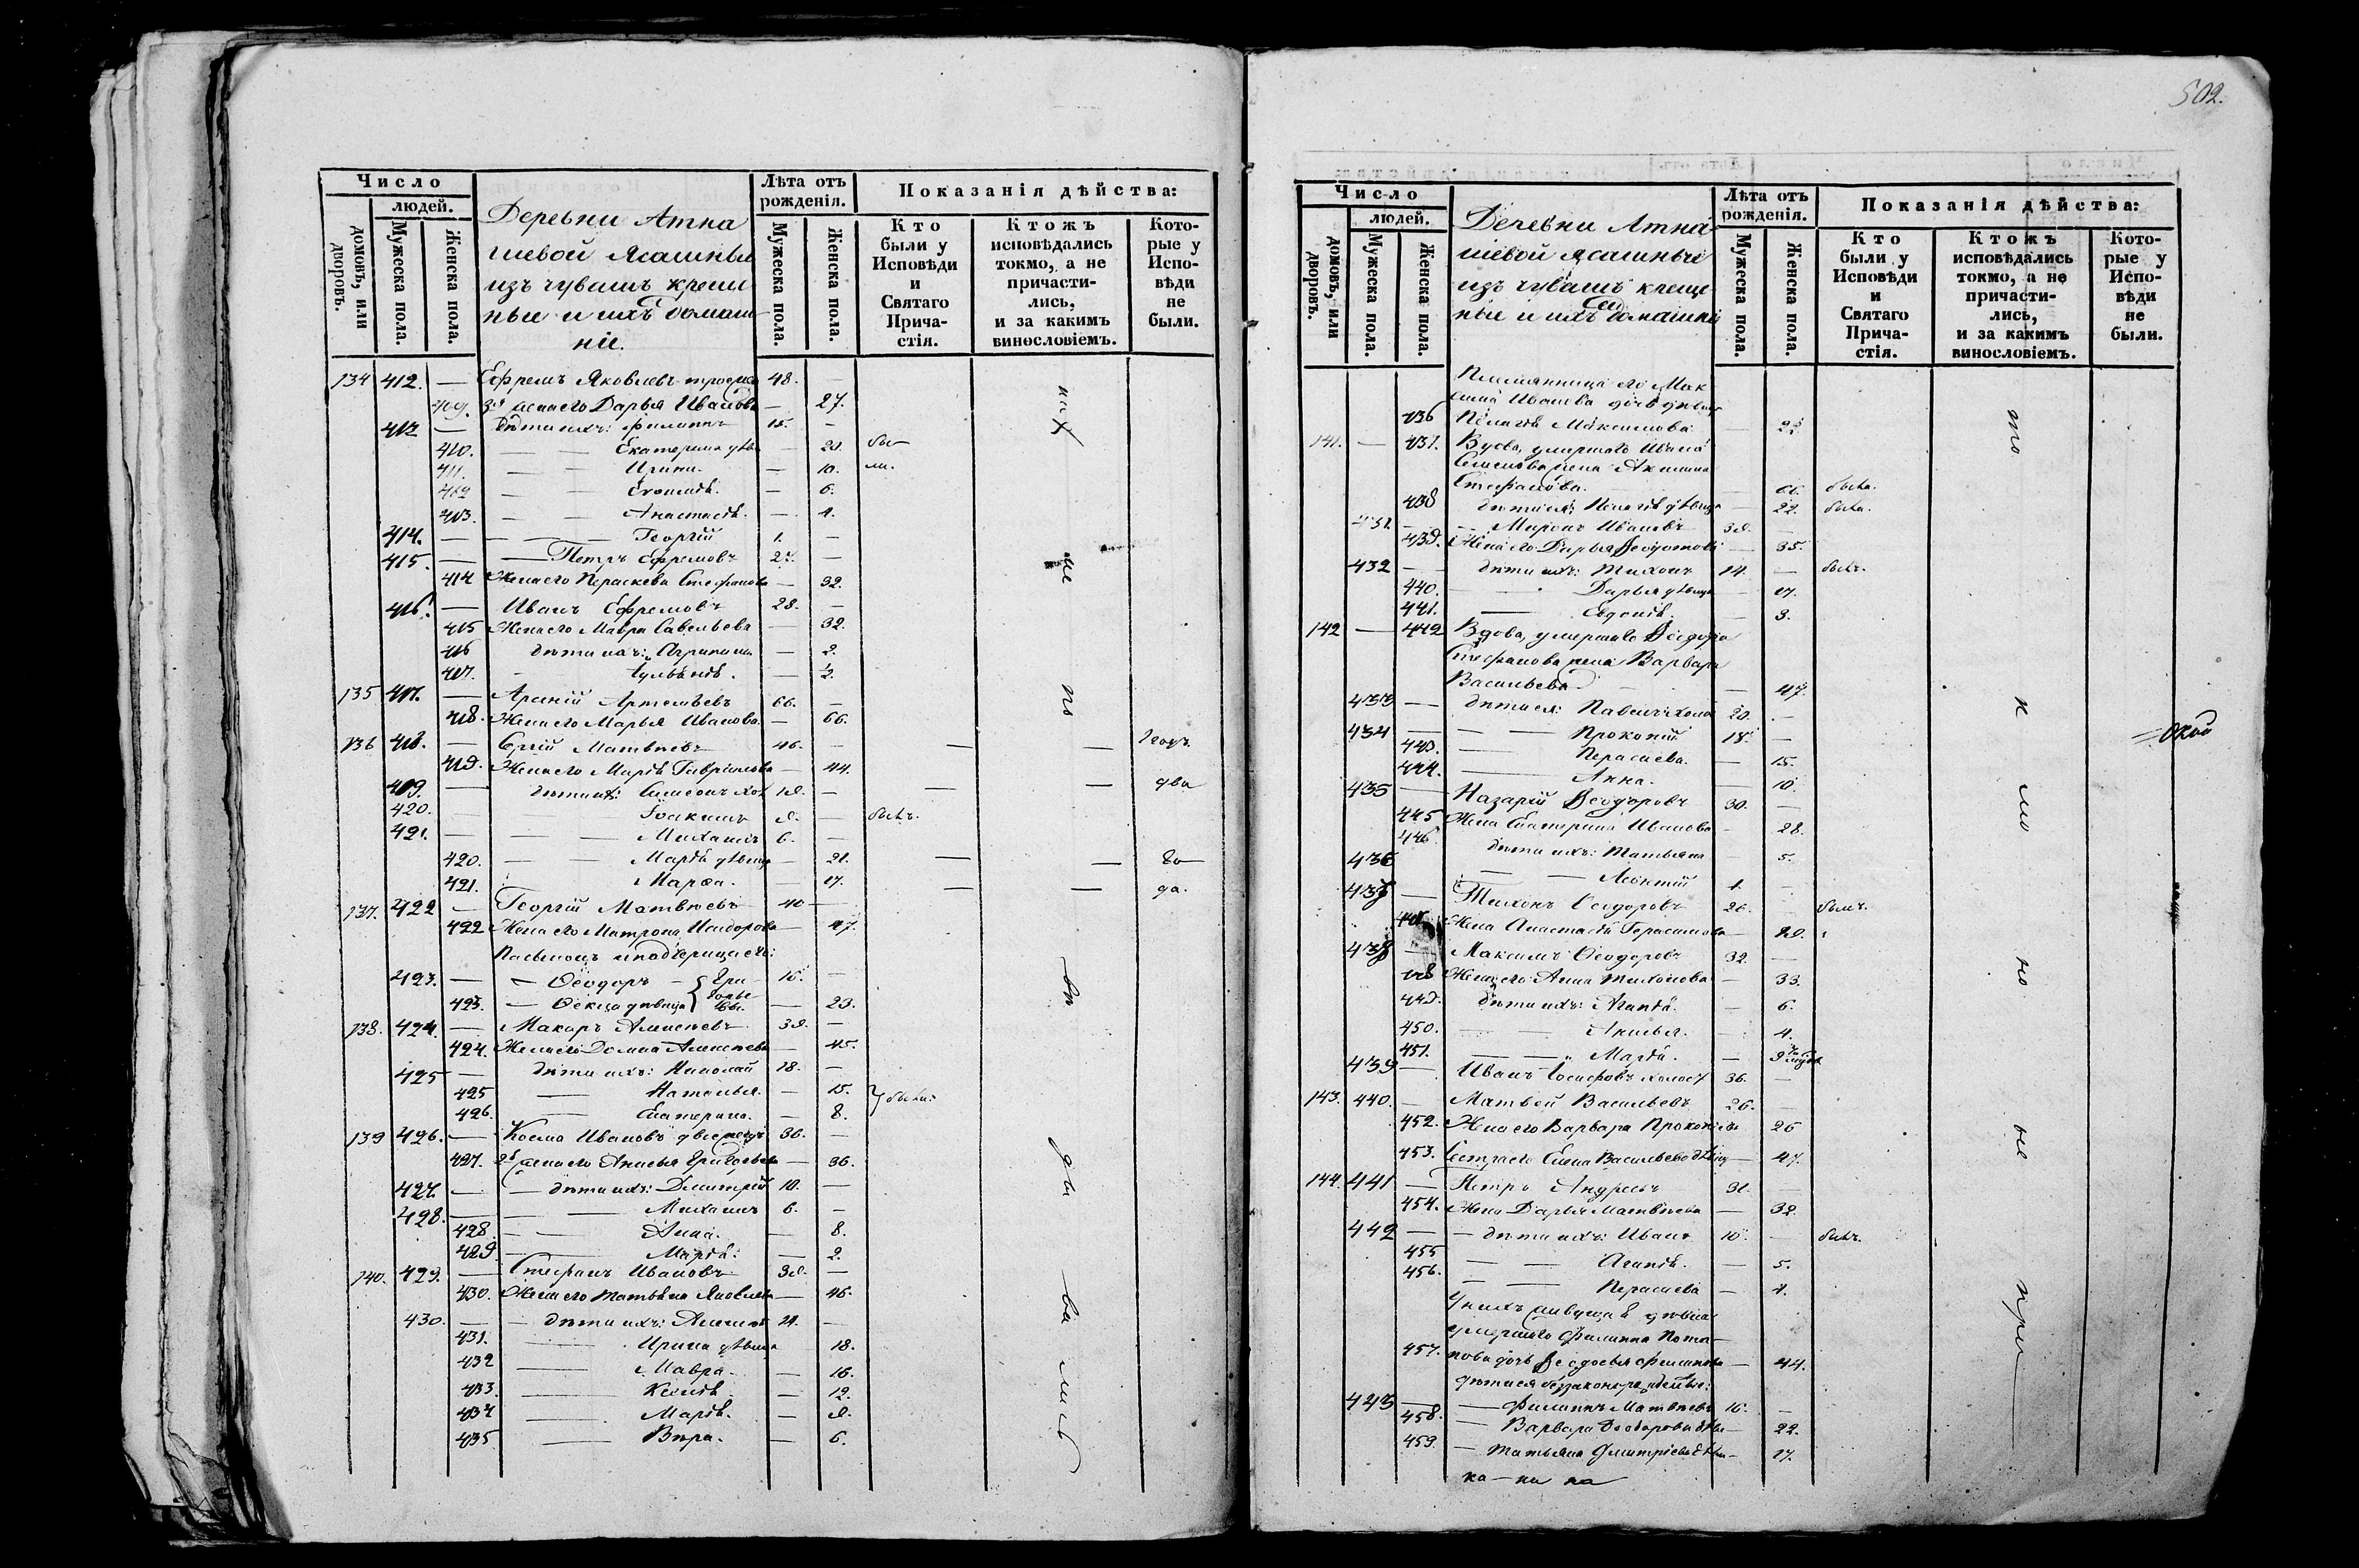 Число
людей.
домовъ, или дворовъ.
Мужеска пола.
Женска пола.
Деревни Атна
шевой Ясашныя
изъ чувашъ креще
ные и ихъ домаш
ніе.
Лѣта отъ рожденія.
Мужеска пола.
Женска пола.
Показанія дѣйства:
Кто были у Исповѣди и Святаго Прича-стія.
Ктожъ исповѣдались токмо, а не причасти-лись, и за какимъ винословіемъ.
Кото-рые у Испо-вѣди не были.
134 412. — Ефремъ Яковлевъ 48. —
409. жена его Дарья Иванова — 27.
— дѣти ихъ: Филиппъ 15. —
410. — — Екатерина — 20. бы
411. — — Ирина. — 10. ли.
412 — — — 6.
413. — — Анастасія. — 4.
414. — — — Георгій 1. —
415. — — Петръ Ефремовъ 27. —
414 Жена его Параскева Стефанова — 32.
416. — Иванъ Ефремовъ 28. —
415 Жена его Мавра Савельева — 32.
416 дѣти ихъ: Агрипина — 2.
417. — — ½.
135 417. — Арсеній Артемьевъ 66. —
418. Жена его Марья Иванова. — 66.
136 418. — Сергій Матвѣевъ 46. — — — 2 годъ
419. Жена его Марія Гаврилова — 44.
419. — дѣти ихъ: Симеонъ хол 19. — — — два
420. — — Іоакимъ 9. — былъ.
421. — — — Михаилъ 6. —
420. — — Марія дѣвица — 21. — —
421. Марѳа. — 17. — — да.
137. 422 — Георгій Матвѣевъ 40 —
422 Жена его Матрона Исидорова — 47.
Пасынокъ и падчерица его:
423. — — Ѳеодоръ — Гри- 16. —
423. — Ѳекла дѣвица горье-вы. — 23.
138. 424. — Макаръ Алексѣевъ 39. —
424. Жена его Домна Алексѣева — 45.
425 — дѣти ихъ: Николай 18. —
425 — Наталья. — 15. были.
426. — Екатерина. — 8.
139 426. — Косма Ивановъ двоежен 36. —
427. 2я жена его Анисья Григорьева — 36.
427. — — дѣти ихъ: Дмитрій 10. —
428. — — — Михаилъ 6. —
428 — — Анна. — 8.
429. — — Марія: — 2.
140. 429. — Стефанъ Ивановъ 39. —
430. Жена его Татьяна Яковлева — 46.
430. — — дѣти ихъ: Алексѣй 21. —
431. — Ирина дѣвица — 18.
432 — Мавра. — 16.
433. — Ксенія — 12.
434 — Марія. — 9.
435 — Вѣра. — 6.
502.
Число
людей.
домовъ, или дворовъ.
Мужеска пола.
Женска пола.
Деревни Атна-
шевой ясашныя
изъ чувашъ креще
ные и ихъ домашніе
Лѣта отъ рожденія.
Мужеска пола.
Женска пола.
Показанія дѣйства:
Кто были у Исповѣди и Святаго Прича-стія.
Ктожъ исповѣдались токмо, а не причасти-лись, и за какимъ винословіемъ.
Кото-рые у Испо-вѣди не были.
Племянница его Мак
сима Иванова дочь дѣвица
436 Пелагія Максимова —
141. — 437. Вдова, умершаго Ивана
Семенова жена Акилина
Стефанова. — 61. была.
438 дѣти ея: Пелагія дѣвица — 22. была.
431. — — Миронъ Ивановъ 39.
439. Жена его Дарья Ѳедотова — 35.
432 — — дѣти ихъ: Тихонъ 14. — былъ.
440. — Дарья дѣвица — 17.
441. — Евдокія — 3.
142 — 442 Вдова, умершаго Ѳеодора
Стефанова жена Варвара
Васильева — 47.
433 — дѣти ея: Павелъ холос 20. —
434 — — — Прокопій 18. —
443. — Параскева. — 15.
444. — Анна. — 10.
435 — Назарій Ѳеодоровъ 30. —
445 Жена Екатерина Иванова — 28.
446. дѣти ихъ: Татьяна — 5.
436 — — Леонтій 1. —
437 — Тихонъ Ѳеодоровъ 26. былъ.
Жена Анастасія Герасимова — 29.
438 — Максимъ Ѳеодоровъ 32. —
448 Жена его Анна Тихонова — 33.
449. дѣти ихъ: Агапія. — 6.
450. — — Акилина. — 4.
451. — — Марія. —
439 — Иванъ Іосифовъ холост 36. —
143. 440. — Матвей Васильевъ 26. —
452. Жена его Варвара Прокопьева 26
453. Сестра его Елена Васильева дѣвица — 47.
144. 441 — Петръ Андреевъ 31. —
454. Жена Дарья Матвѣева — 32
442 — — дѣти ихъ: Иванъ 10. — былъ.
455 — — Агапія. — 5.
456. — — Параскева — 1.
У нихъ живуща дѣвица
умершаго Филиппа Пота-
457. пова дочь Ѳедосья Филиппова — 44.
дѣти ея беззаконорожденные:
443 — — Филиппъ Матвѣевъ 16. —
458. — Варвара Ѳеодорова дѣв — 22.
459. — Татьяна Дмитріева дѣв — 17.